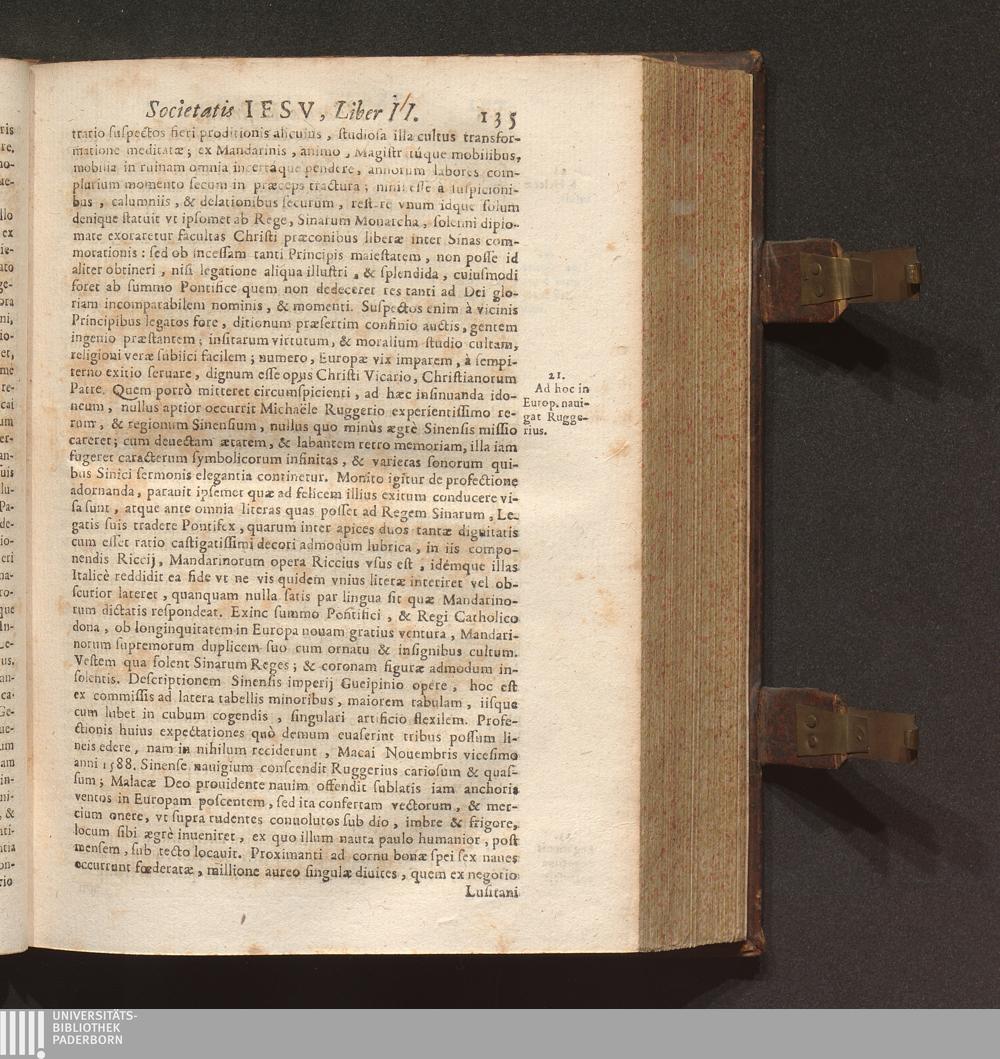 Societatis IESV, Liber II. 135
tratio suspectos fieri proditionis alicuius, studiosa illa cultus transfor-
matione meditatæ; ex Mandarinis, animo, Magistratúque mobilibus,
mobilia in ruinam omnia incertáque pendere, annorum labores com-
plurium momento secum in præceps tractura; nihil esse à suspicioni-
bus, calumniis, & delationibus securum, restare vnum idque solum
denique statuit vt ipsomet ab Rege, Sinarum Monarcha, solemni diplo-
mate exoraretur facultas Christi præconibus liberæ inter Sinas com-
morationis: sed ob incessam tanti Principis maiestatem, non posse id
aliter obtineri, nisi legatione aliqua illustri, & splendida, cuiusmodi
foret ab summo Pontifice quem non dedeceret res tanti ad Dei glo-
riam incomparabilem nominis, & momenti. Suspectos enim à vicinis
Principibus legatos fore, ditionum præsertim confinio auctis, gentem
ingenio præstantem; insitarum virtutum, & moralium studio cultam,
religioni veræ subiici facilem; numero, Europæ vix imparem, à sempi-
terno exitio seruare, dignum esse opus Christi Vicario, Christianorum
Patre. Quem porrò mitteret circumspicienti, ad hæc insinuanda ido-
neum, nullus aptior occurrit Michaële Ruggerio experientissimo re-
rum, & regionum Sinensium, nullus quo minùs ægrè Sinensis missio
careret; cum deuectam ætatem, & labantem retro memoriam, illa iam
fugeret caracterum symbolicorum infinitas, & varietas sonorum qui-
bus Sinici sermonis elegantia continetur. Monito igitur de profectione
adornanda, parauit ipsemet quæ ad felicem illius exitum conducere vi-
sa sunt, atque ante omnia literas quas posset ad Regem Sinarum, Le-
gatis suis tradere Pontifex, quarum inter apices duos tantæ dignitatis
cum esset ratio castigatissimi decori admodum lubrica, in iis compo-
nendis Riccij, Mandarinorum opera Riccius vsus est, idémque illas
Italicè reddidit ea fide vt ne vis quidem vnius literæ interiret vel ob-
scurior lateret, quanquam nulla satis par lingua sit quæ Mandarino-
rum dictatis respondeat. Exinc summo Pontifici, & Regi Catholico
dona, ob longinquitatem in Europa nouam gratius ventura, Mandari-
norum supremorum duplicem suo cum ornatu & insignibus cultum.
Vestem qua solent Sinarum Reges; & coronam figuræ admodum in-
solentis. Descriptionem Sinensis imperij Gueipinio opere, hoc est
ex commissis ad latera tabellis minoribus, maiorem tabulam, iisque
cum lubet in cubum cogendis, singulari artificio flexilem. Profe-
ctionis huius expectationes quò demum euaserint tribus possum li-
neis edere, nam in nihilum reciderunt, Macai Nouembris vicesimo
anni 1588. Sinense nauigium conscendit Ruggerius cariosum & quas-
sum; Malacæ Deo prouidente nauim offendit sublatis iam anchoris
ventos in Europam poscentem, sed ita confertam vectorum, & mer-
cium onere, vt supra rudentes conuolutos sub dio, imbre & frigore,
locum sibi ægrè inueniret, ex quo illum nauta paulo humanior, post
mensem, sub tecto locauit. Proximanti ad cornu bonæ spei sex naues
occurrunt fœderatæ, millione aureo singulæ diuites, quem ex negotio
Lusitani
21.
Ad hoc in
Europ. naui-
gat Rugge-
rius.
UNIVERSITÄTS-
BIBLIOTHEK
PADERBORN